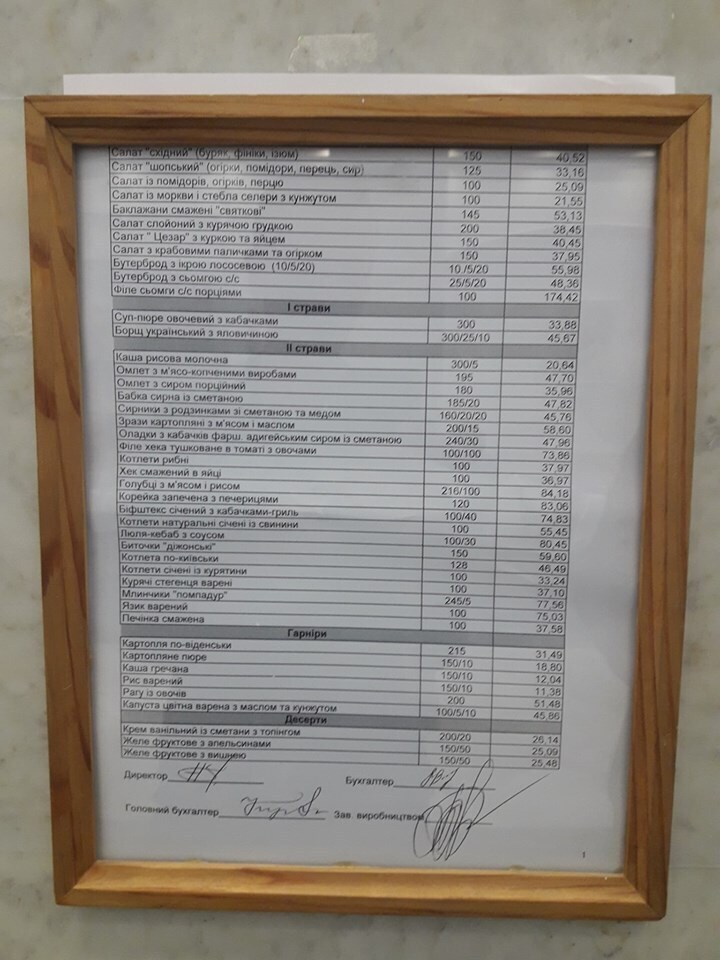 Салат "східний" (буряк, фініки, ізюм) 150 40,52
Салат "шопський" (огірки, помідори, перець, сир) 125 33,16
Салат із помідорів, огірків, перцю 100 25,09
Салат із моркви і стебла селери з кунжутом 100 21,55
Баклажани смажені "святкові" 145 53,13
Салат слойоний з курячою грудкою 200 38,45
Салат " Цезар" з куркою та яйцем 150 40,45
Салат з крабовими паличками та огірком 150 37,95
Бутерброд з ікрою лососевою (10/5/20) 10./5/20 55,98
Бутерброд з сьомгою с/с 25/5/20 48,36
Філе сьомги с/с порціями 100 174,42
І страви
Суп-пюре овочевий з кабачками 300 33,88
Борщ український з яловичиною 300/25/10 45,67
ІІ страви
Каша рисова молочна 300/5 20,64
Омлет з м'ясо-копченими виробами 195 47,70
Омлет з сиром порційний 180 35,96
Бабка сирна із сметаною 185/20 47,82
Сирники з родзинками зі сметаною та медом 160/20/20 45,76
Зрази картопляні з м'ясом і маслом 200/15 58,60
Оладки з кабачків фарш. адигейським сиром із сметаною 240/30 47,96
Філе хека тушковане в томаті з овочами 100/100 73,86
Котлети рибні 100 37,97
Хек смажений в яйці 100 36,97
Голубці з м'ясом і рисом 216/100 84,18
Корейка запечена з печерицями 120 83,06
Біфштекс січений з кабачками-гриль 100/40 74,83
Котлети натуральні січені із свинини 100 55,45
Люля-кебаб з соусом 100/30 80,45
Биточки "діжонські" 150 59,60
Котлета по-київськи 128 46,49
Котлети січені із курятини 100 33,24
Курячі стегенця варені 100 37,10
Млинчики "помпадур" 245/5 77,56
Язик варений 100 75,03
Печінка смажена 100 37,58
Гарніри
Картопля по-віденськи 215 31,49
Картопляне пюре 150/10 18,80
Каша гречана 150/10 12,04
Рис варений 150/10 11,38
Рагу із овочів 200 51,48
Капуста цвітна варена з маслом та кунжутом 100/5/10 45,86
Десерти
Крем ванільний із сметани з топінгом 200/20 26,14
Желе фруктове з апельсинами 150/50 25,09
Желе фруктове з вишнею 150/50 25,48
Директор Бухгалтер
Головний бухгалтер Зав. виробництвом
1